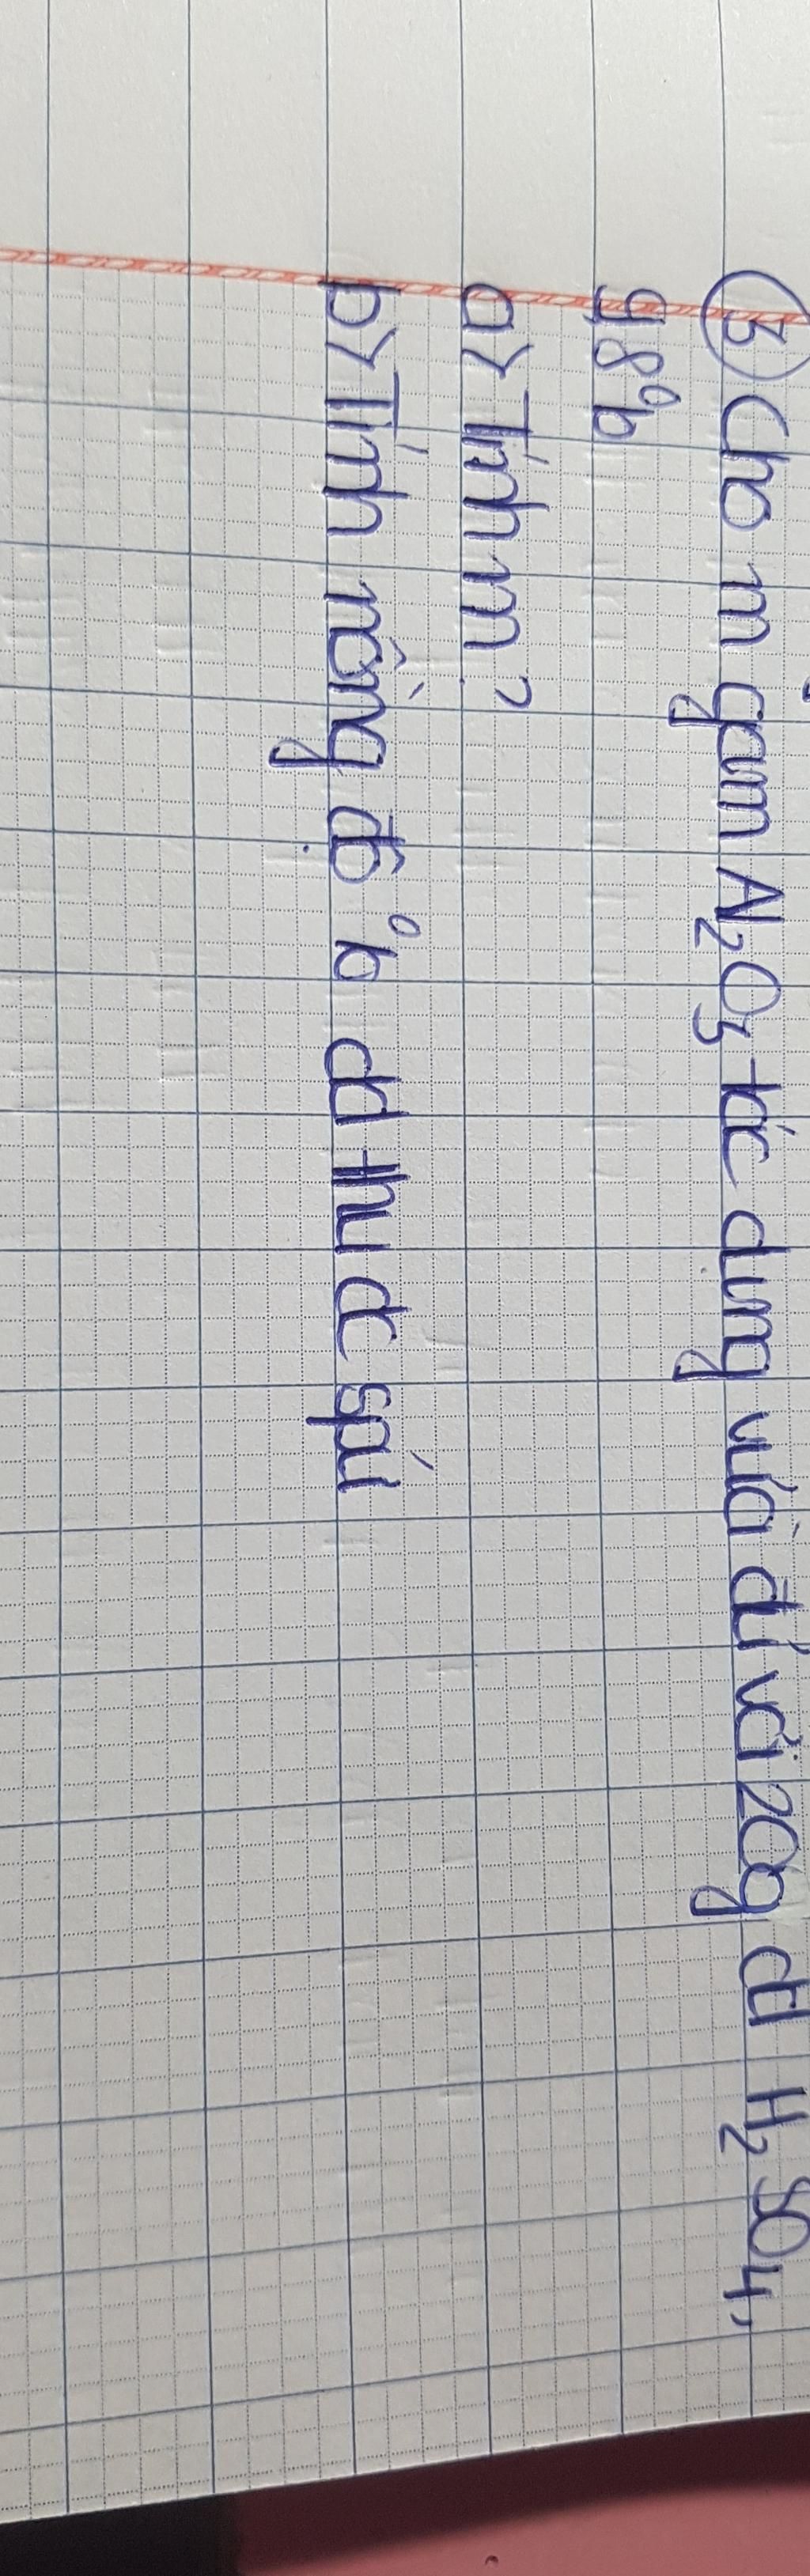 ③ Cho m gam Al2O3 tác dụng vừa đủ với 20g dd H2SO4,
98%
a> Tính m ?
b> Tính nồng độ % dd thu đc spứ